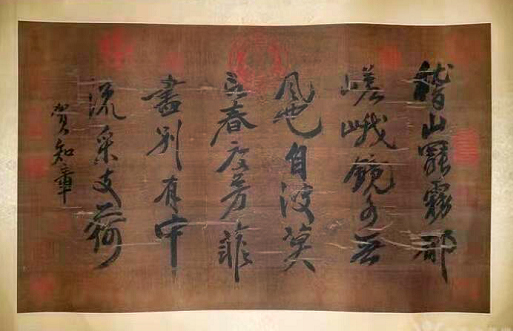 稽山罷霧郁
嵯峨鏡水无
風也自波莫
言春度芳菲
盡別有中
流采支荷
賀知章